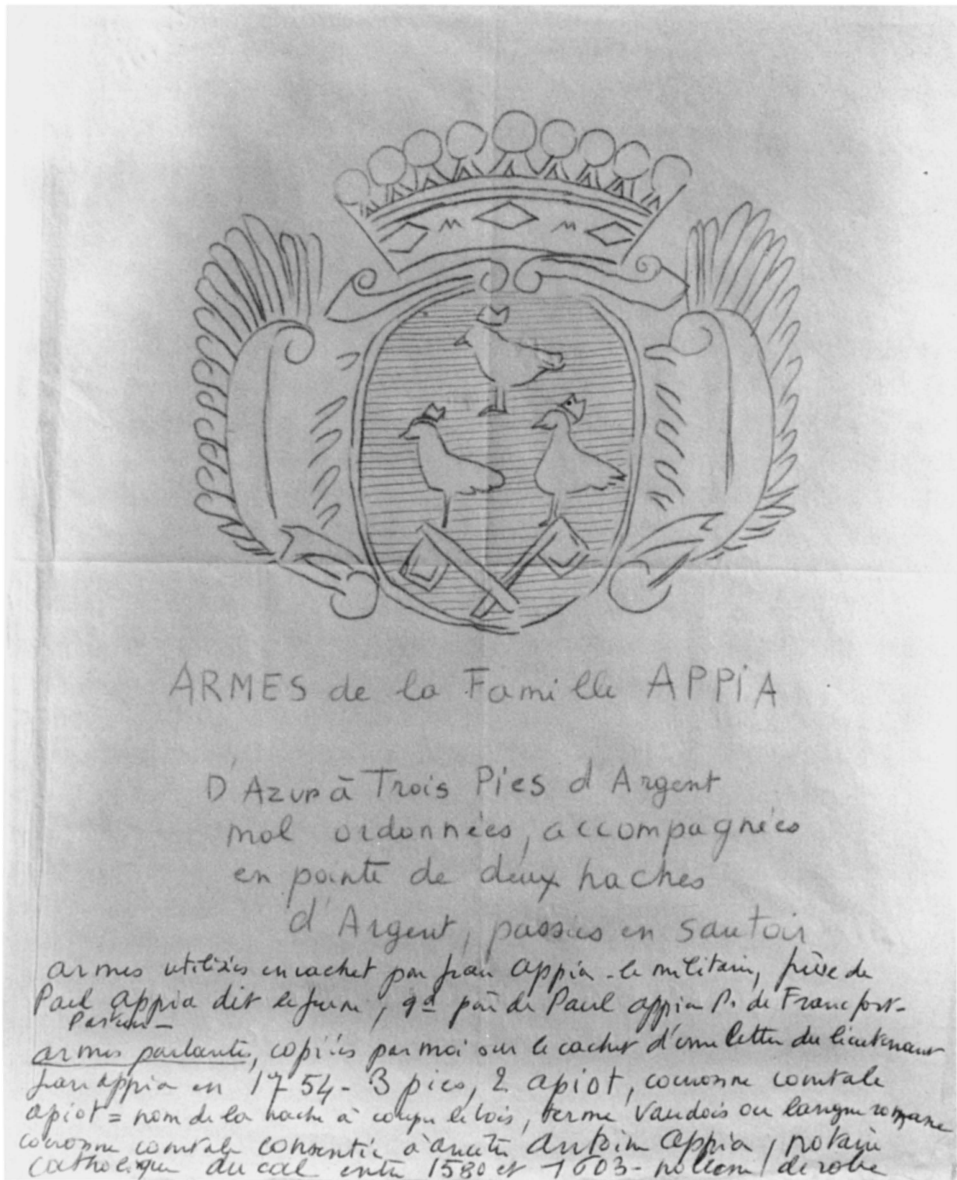 ARMES de la Famille APPIA
D'Azur à Trois Pies d'Argent
mal ordonnées, accompagnées
en pointe de deux haches
d'Argent, passées en sautoir
armes utilisées en cachet par Jean Appia - le militaire, frère de
Paul Appia dit le jeune, gd père de Paul Appia P. de Francfort-
Pasteur-
armes parlantes, copiées par moi sur le cachet d'une lettre du lieutenant
Jean Appia en 1754 - 3 pies, 2 apiot, couronne comtale
apiot = nom de la hache à couper le bois, terme Vaudois ou langue romane
couronne comtale consentie à Antoine Appia, notaire
catholique ducal entre 1580 et 1603 - noblesse de robe